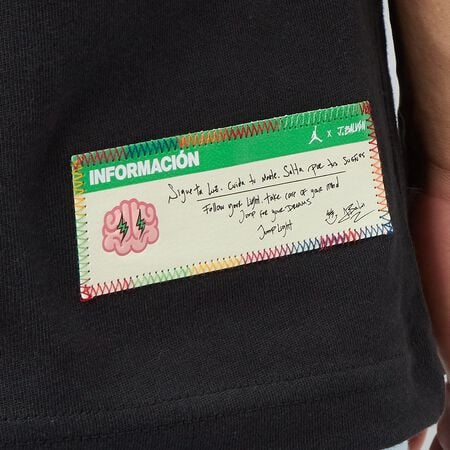 x J.BALVIN
INFORMACIÓN
Sigue tu Luz. Cuida tu Mente. Salta por tus Sueños
Follow your Light, take care of your mind
Jump for your Dreams
Jump Light